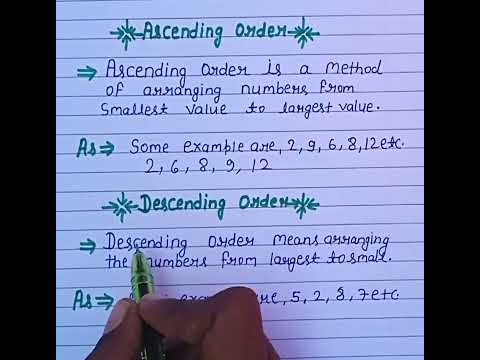 Ascending Order
⇒ Ascending Order is a method
of arranging numbers from
smallest value to largest value.
As ⇒ Some example are, 2, 9, 6, 8, 12 etc.
2, 6, 8, 9, 12
Descending Order
⇒ Descending Order means arranging
the numbers from largest to small.
As ⇒ 5, 2, 8, 7 etc